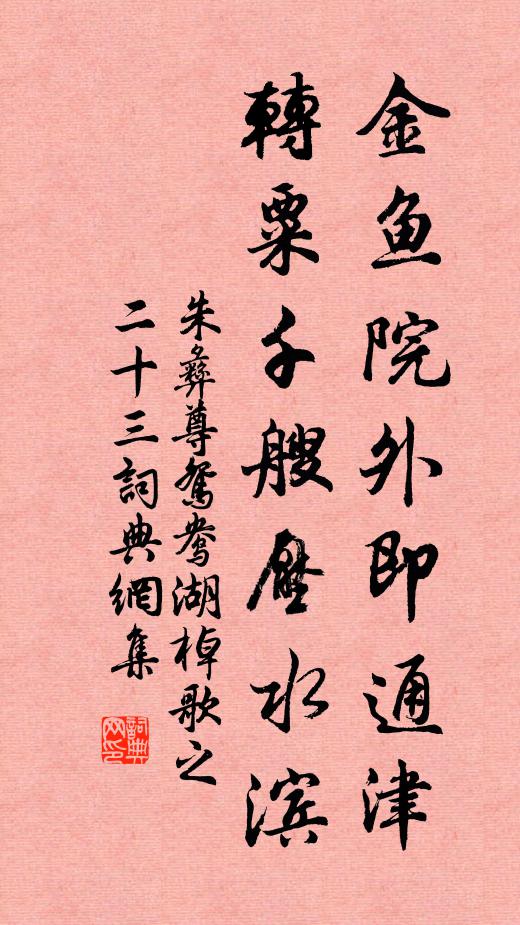 金鱼院外即通津
轉粟千艘壓水滨
朱彝尊鴛鴦湖棹歌之
二十三詞典網集
詞典网印